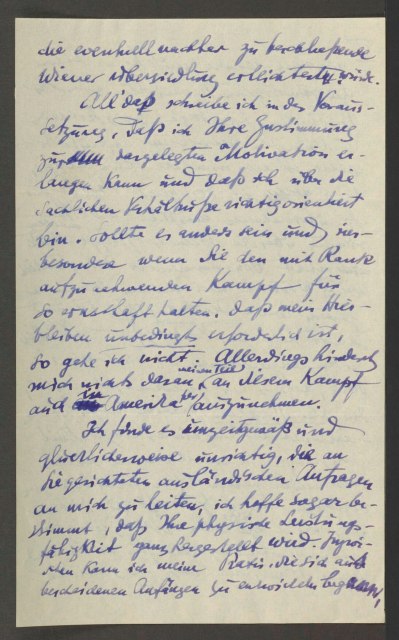 die eventuell nachher zu beschließende
Wiener Übersiedlung erleichtern würde.
All daß schreibe ich in der Voraus-
setzung, daß ich Ihre Zustimmung
zur dargelegten Motivation er-
langen kann und daß ich über die
sachlichen Verhältniße richtig orientiert
bin. Sollte es anders sein und ins-
besondere wenn Sie den mit Rank
aufzunehmenden Kampf für
so ernsthaft halten, daß mein Hier-
bleiben unbedingt erforderlich ist,
so gehe ich nicht. Allerdings hindert
mich nichts daran, meinen Teil an diesem Kampf
auch in Amerika auszunehmen.
Ich finde es unzeitgemäß und
glücklicherweise unrichtig, die an
Sie gerichteten ausländischen Anfragen
an mich zu leiten, ich hoffe sogar be-
stimmt, daß Ihre physische Leistungs-
fähigkeit ganz hergestellt wird. Inzwi-
schen kann ich meine Praxis, die sich aus
bescheidenen Anfängen zu entwickeln begann,